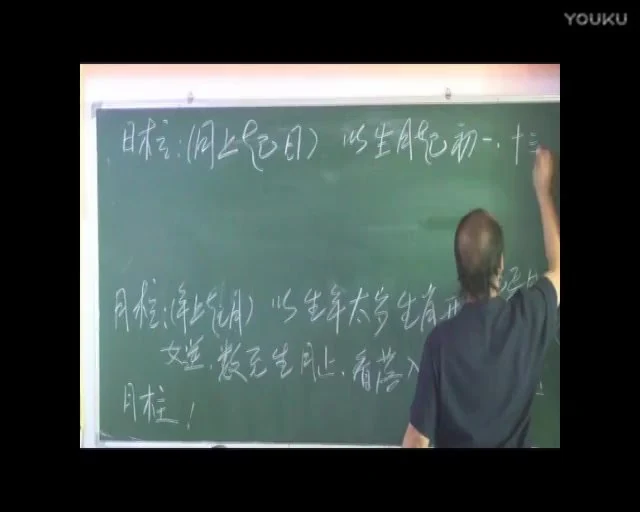 YOUKU
日柱:(月上起日) 以生月起初一、十三
月柱:(年上起月) 以生年太岁生肖开
数完生月止,看落入
月柱!